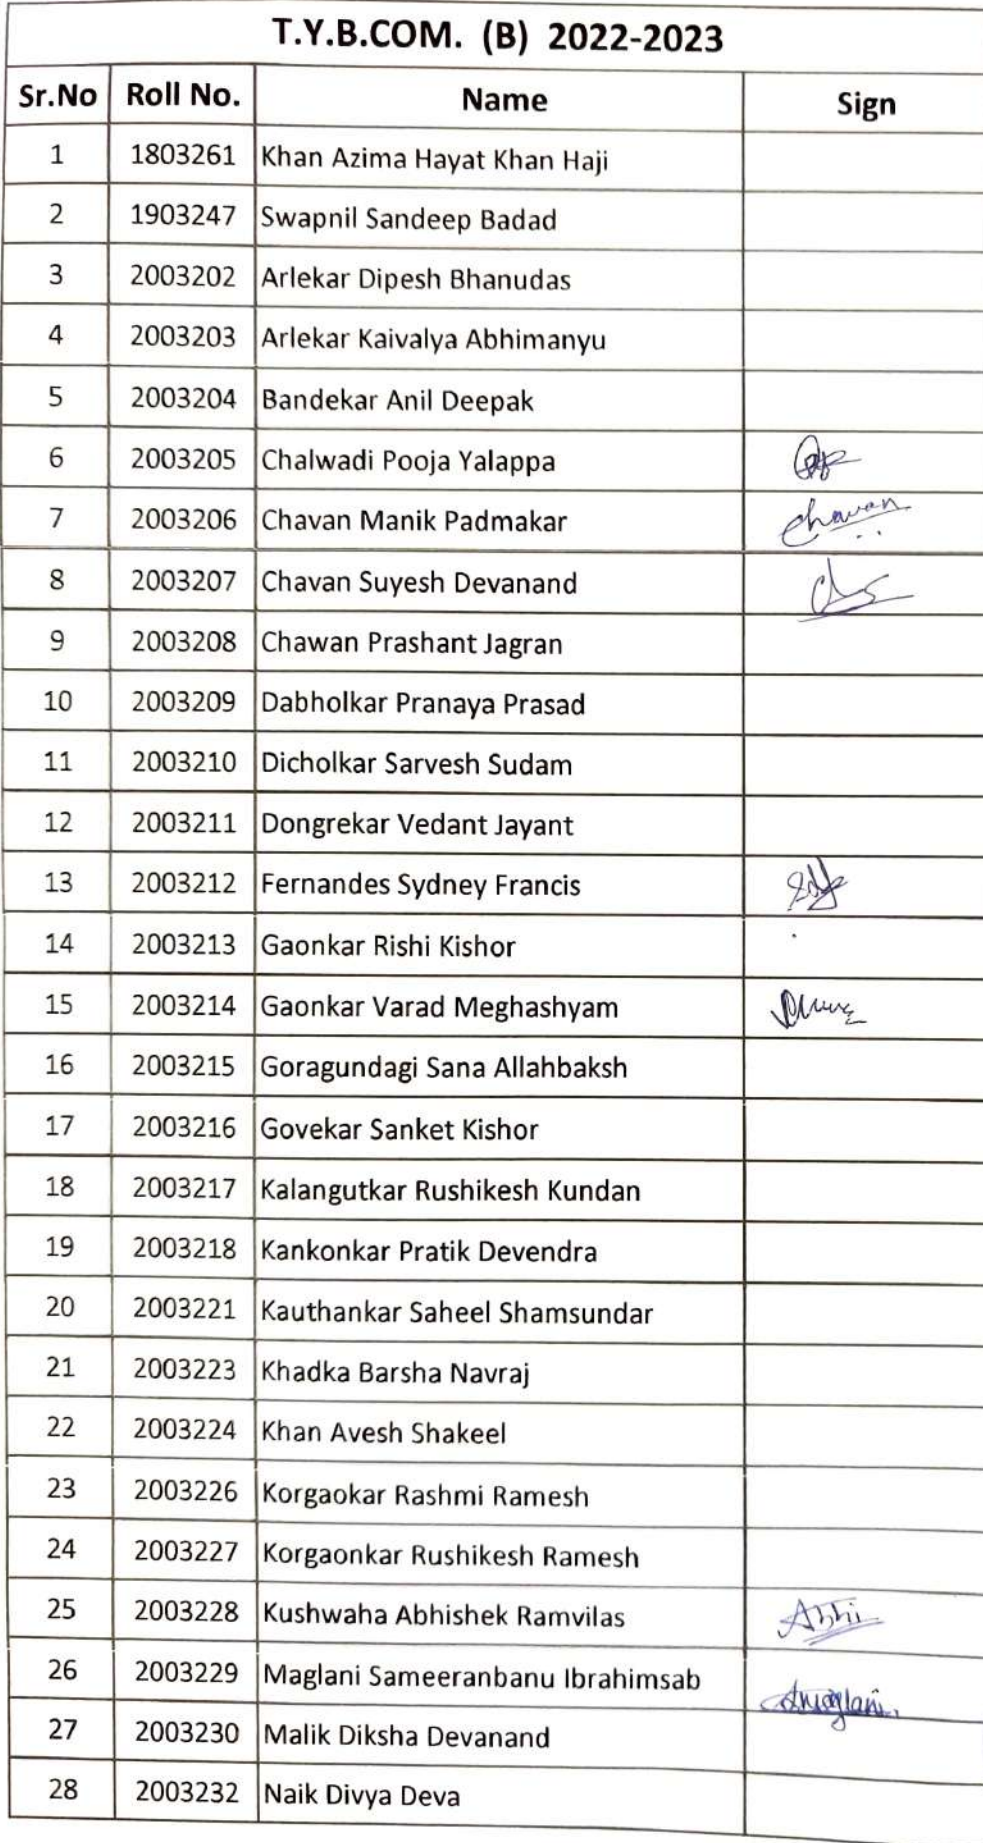 T.Y.B.COM. (B) 2022-2023
Sr.No Roll No. Name Sign
1 1803261 Khan Azima Hayat Khan Haji
2 1903247 Swapnil Sandeep Badad
3 2003202 Arlekar Dipesh Bhanudas
4 2003203 Arlekar Kaivalya Abhimanyu
5 2003204 Bandekar Anil Deepak
6 2003205 Chalwadi Pooja Yalappa
7 2003206 Chavan Manik Padmakar Chavan
8 2003207 Chavan Suyesh Devanand
9 2003208 Chawan Prashant Jagran
10 2003209 Dabholkar Pranaya Prasad
11 2003210 Dicholkar Sarvesh Sudam
12 2003211 Dongrekar Vedant Jayant
13 2003212 Fernandes Sydney Francis
14 2003213 Gaonkar Rishi Kishor
15 2003214 Gaonkar Varad Meghashyam
16 2003215 Goragundagi Sana Allahbaksh
17 2003216 Govekar Sanket Kishor
18 2003217 Kalangutkar Rushikesh Kundan
19 2003218 Kankonkar Pratik Devendra
20 2003221 Kauthankar Saheel Shamsundar
21 2003223 Khadka Barsha Navraj
22 2003224 Khan Avesh Shakeel
23 2003226 Korgaokar Rashmi Ramesh
24 2003227 Korgaonkar Rushikesh Ramesh
25 2003228 Kushwaha Abhishek Ramvilas Abhi
26 2003229 Maglani Sameeranbanu Ibrahimsab
27 2003230 Malik Diksha Devanand
28 2003232 Naik Divya Deva